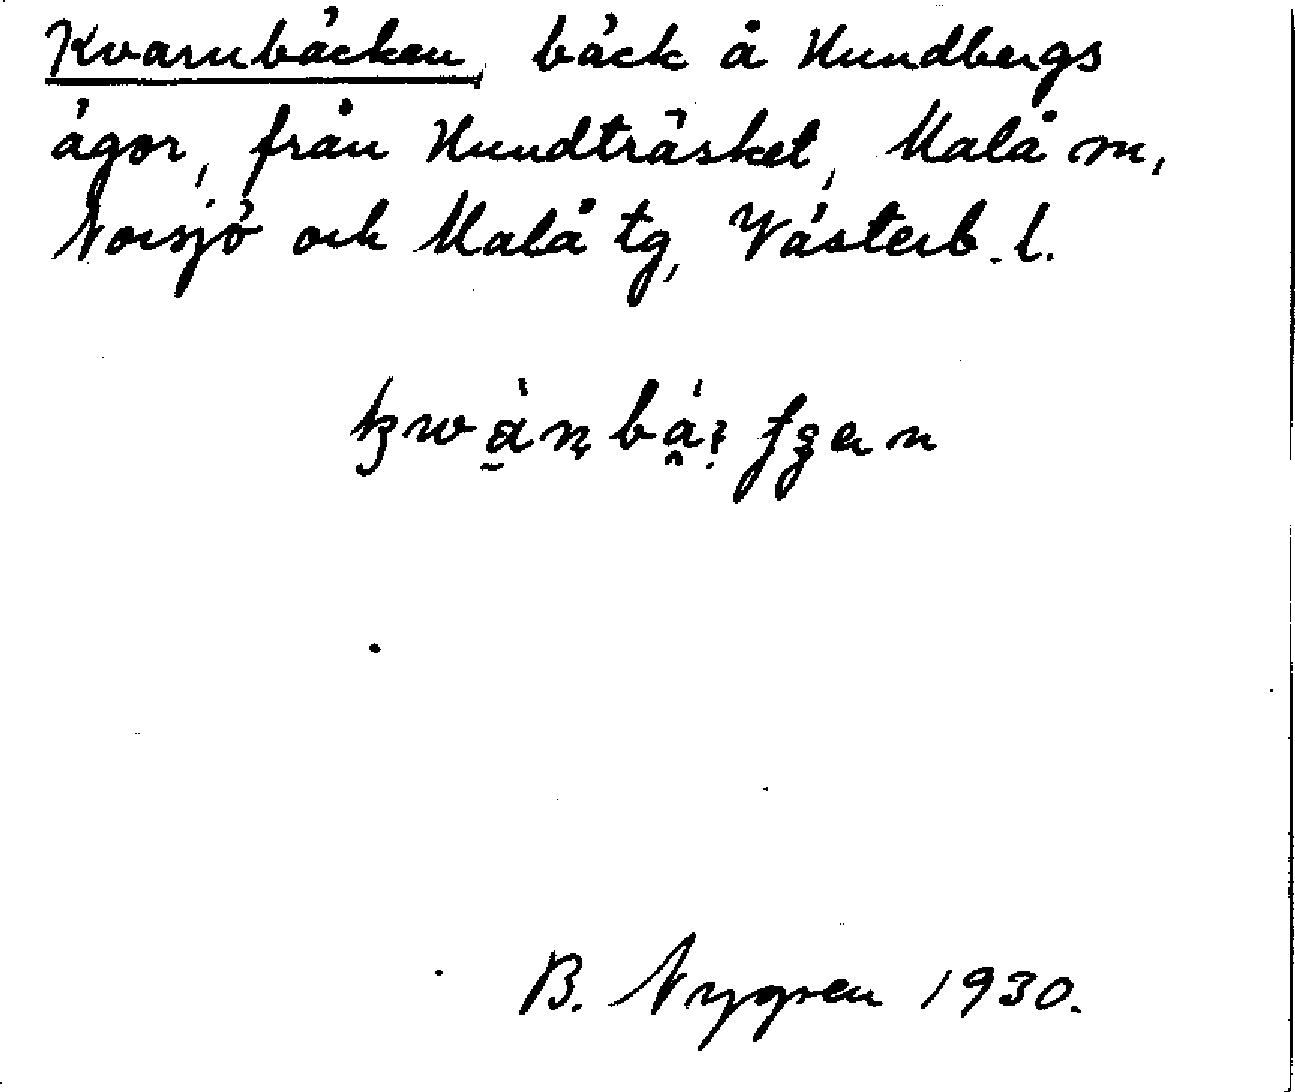 Kvarnbäcken, bäck å Hundbergs
ägor, från Hundträsket, Malå sn,
Norsjö och Malå tg, Västerb. l.
B. Nygren 1930.